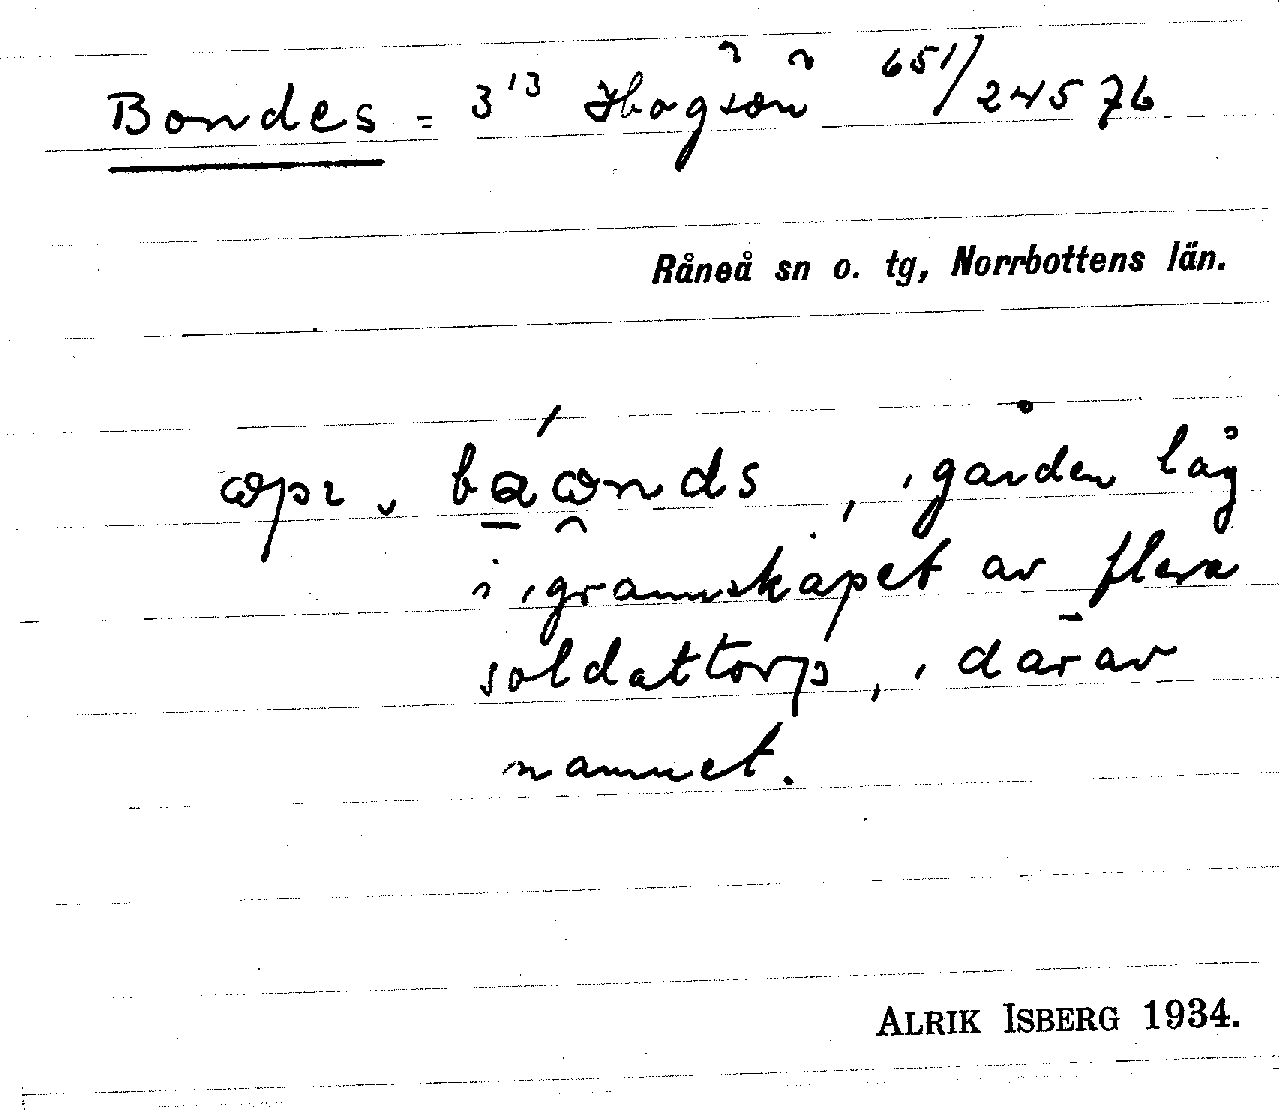 Bondes = 3¹³ Högsön 651/24576
Råneå sn o. tg, Norrbottens län.
opr. båωnds, gården låg
i grannskapet av flera
soldattorp, därav
namnet.
ALRIK ISBERG 1934.